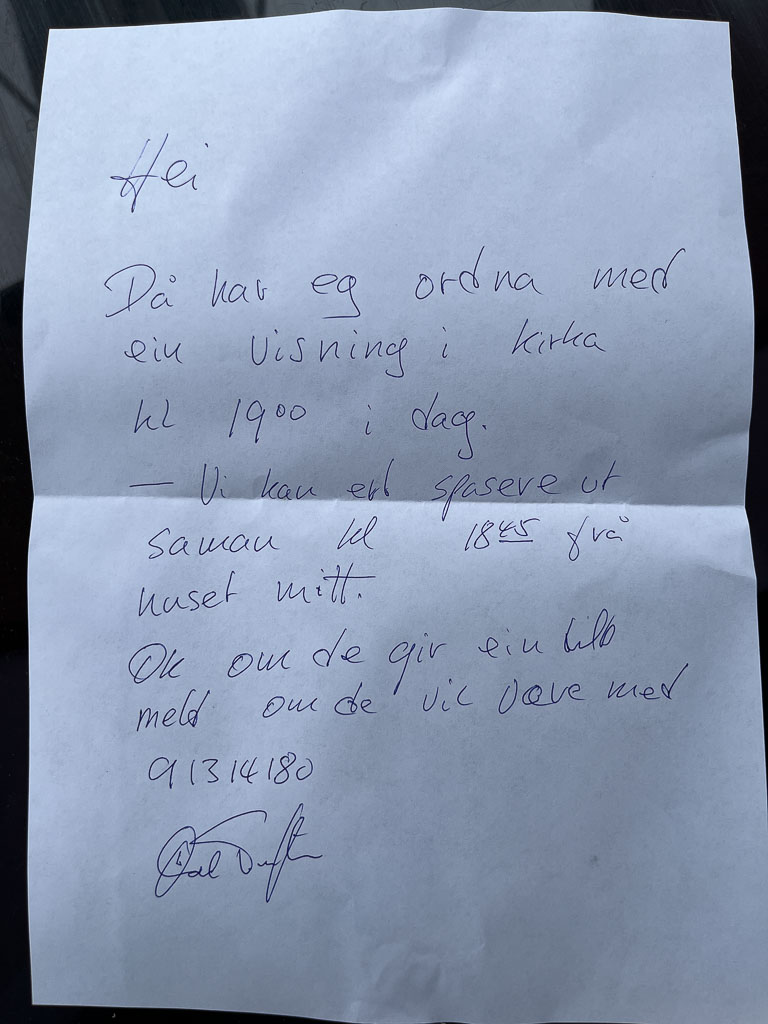 Hei
Då har eg ordna med
ein visning i kirka
kl 19⁰⁰ i dag.
— Vi kan evt spasere ut
saman kl 18⁴⁵ frå
huset mitt.
Ok om de gir ein
meld om de vil være med
91314180